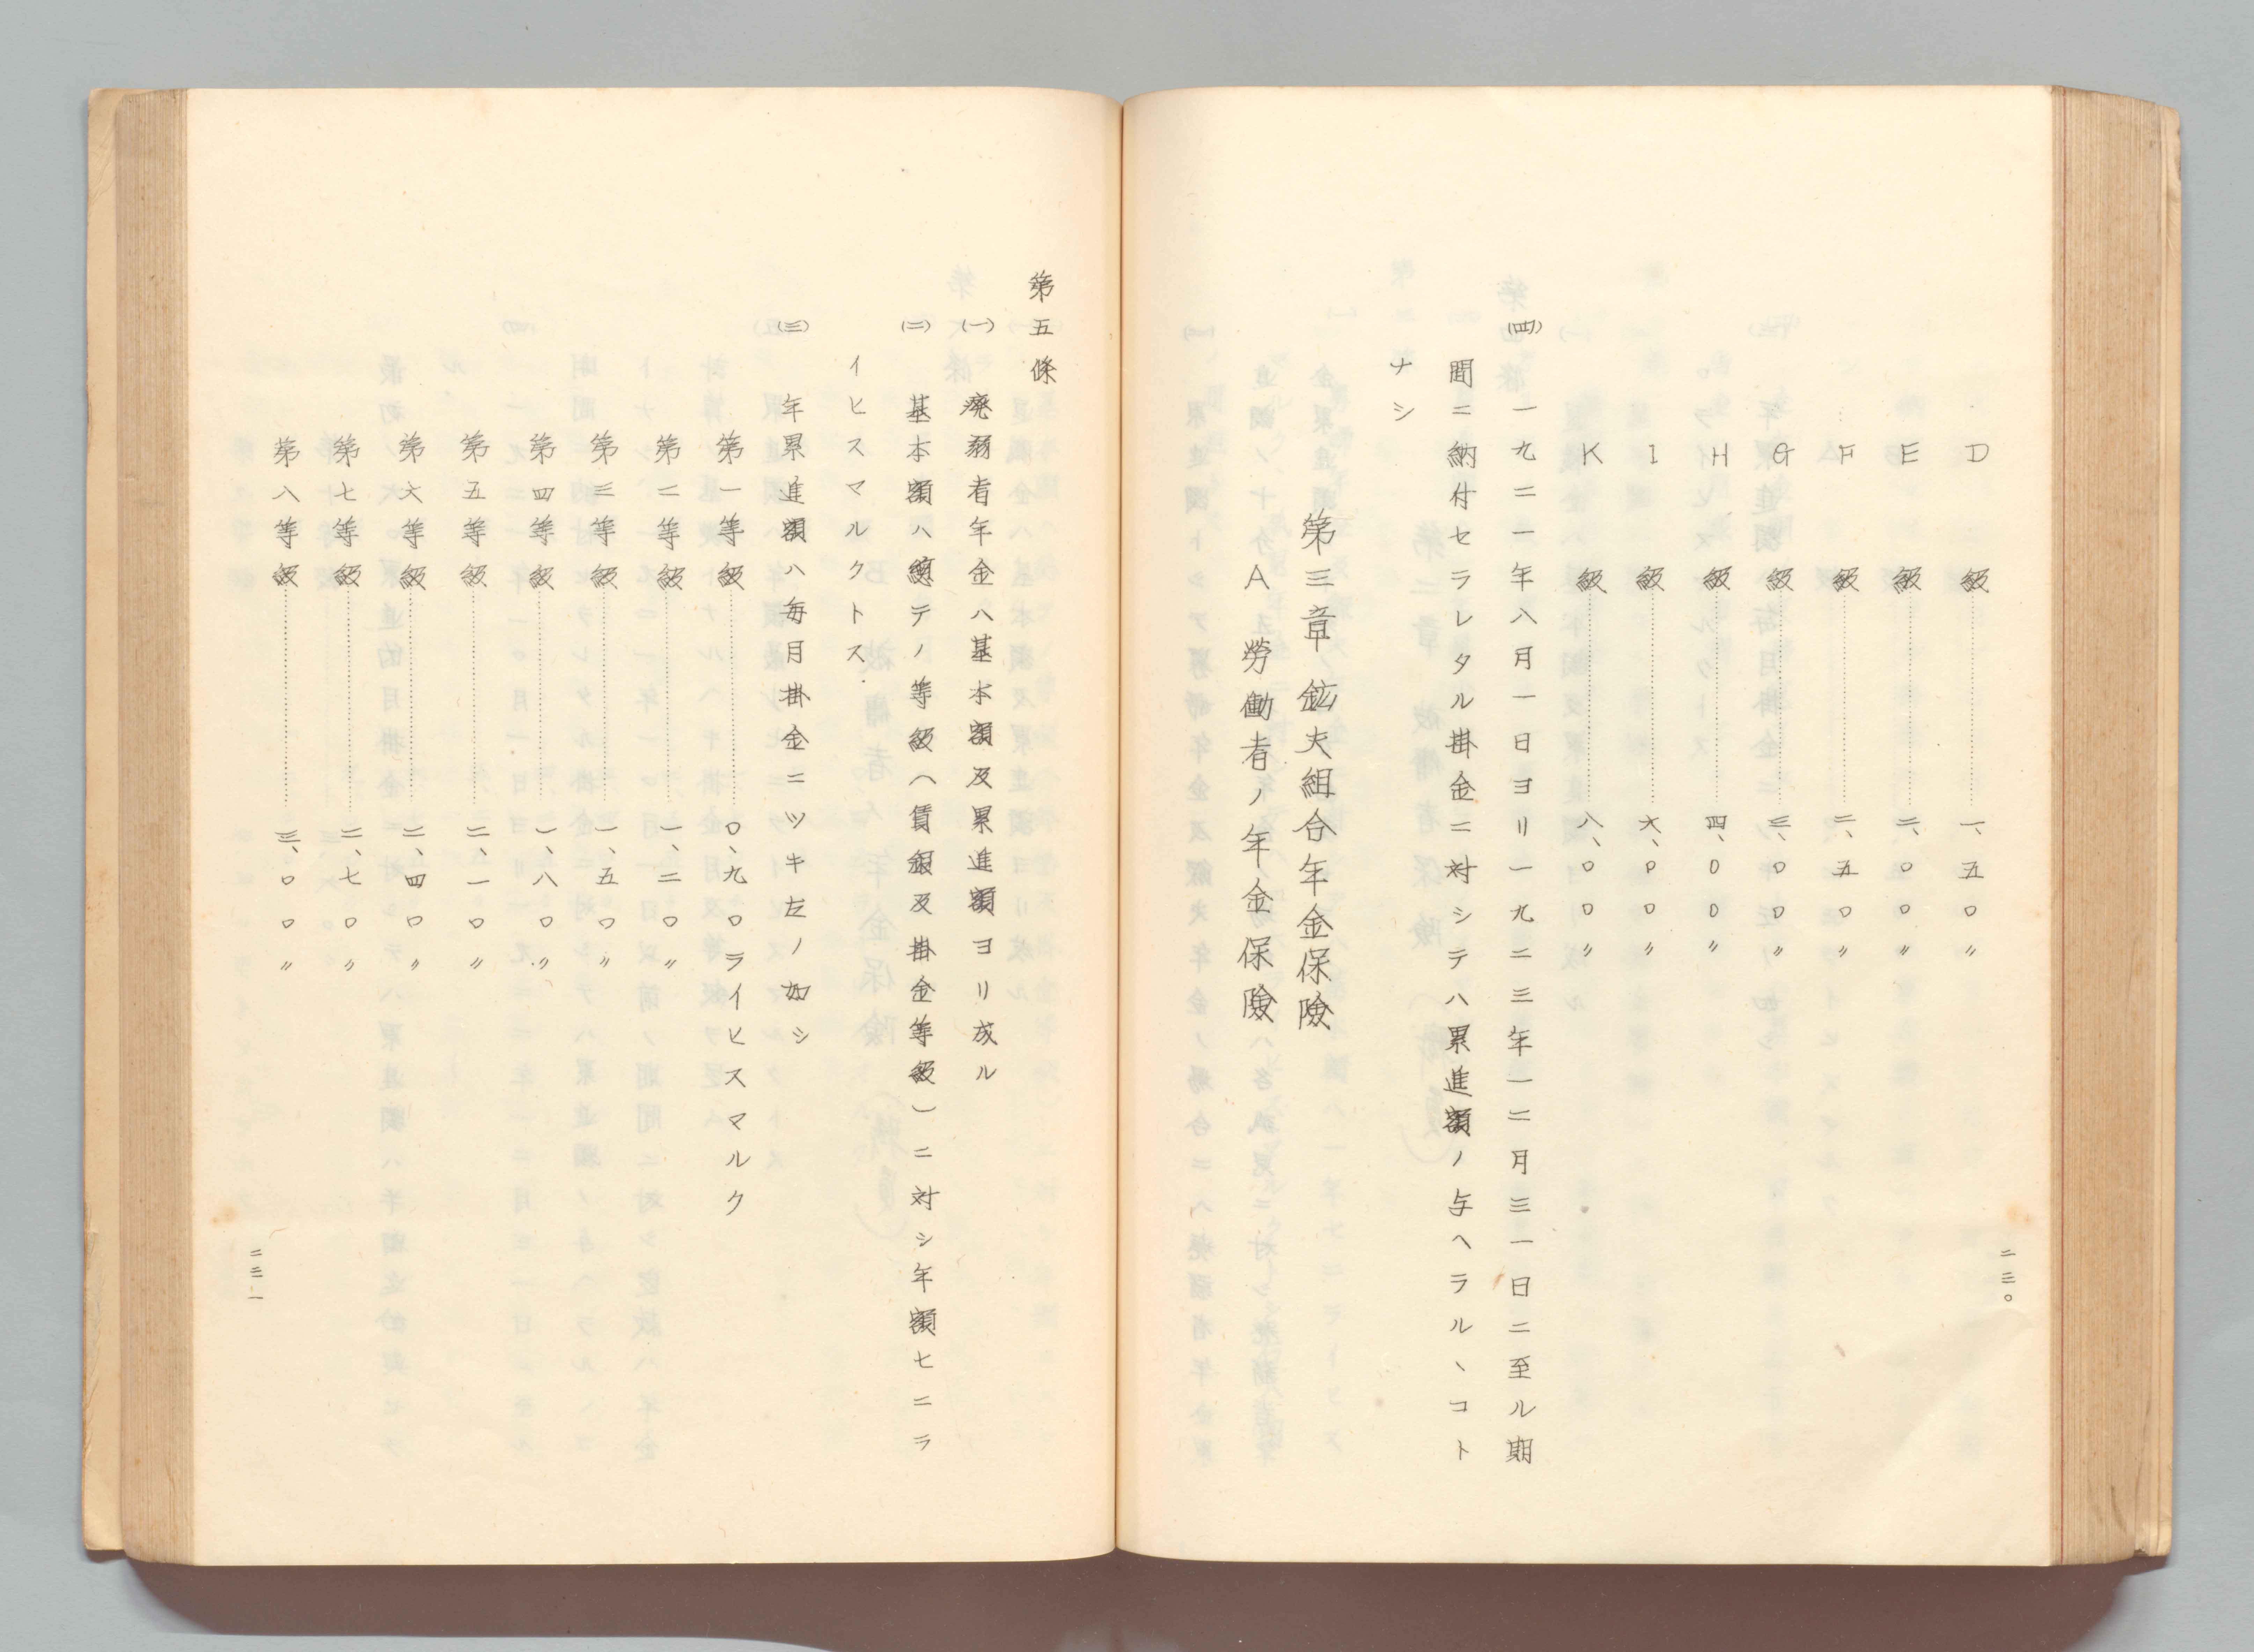 D級…………一、五〇〃
E級…………二、〇〇〃
F級…………二、五〇〃
G級…………三、〇〇〃
H級…………四、〇〇〃
I級…………六、〇〇〃
K級…………八、〇〇〃
(四)一九二一年八月一日ヨリ一九二三年一二月三一日ニ至ル期
間ニ納付セラレタル掛金ニ対シテハ累進額ノ与ヘラルヽコト
ナシ
第三章鉱夫組合年金保險
A 勞働者ノ年金保險
二三〇
第五條
(一)廃弱者年金ハ基本額及累進額ヨリ成ル
(二)基本額ハ總テノ等級(賃銀及掛金等級)ニ対シ年額七二ラ
イヒスマルクトス.
(三)年累進額ハ毎月掛金ニツキ左ノ如シ
第一等級…………〇、九〇ライヒスマルク
第二等級…………一、二〇〃
第三等級…………一、五〇〃
第四等級…………一、八〇〃
第五等級…………二、一〇〃
第六等級…………二、四〇〃
第七等級…………二、七〇〃
第八等級…………三、〇〇〃
二三一